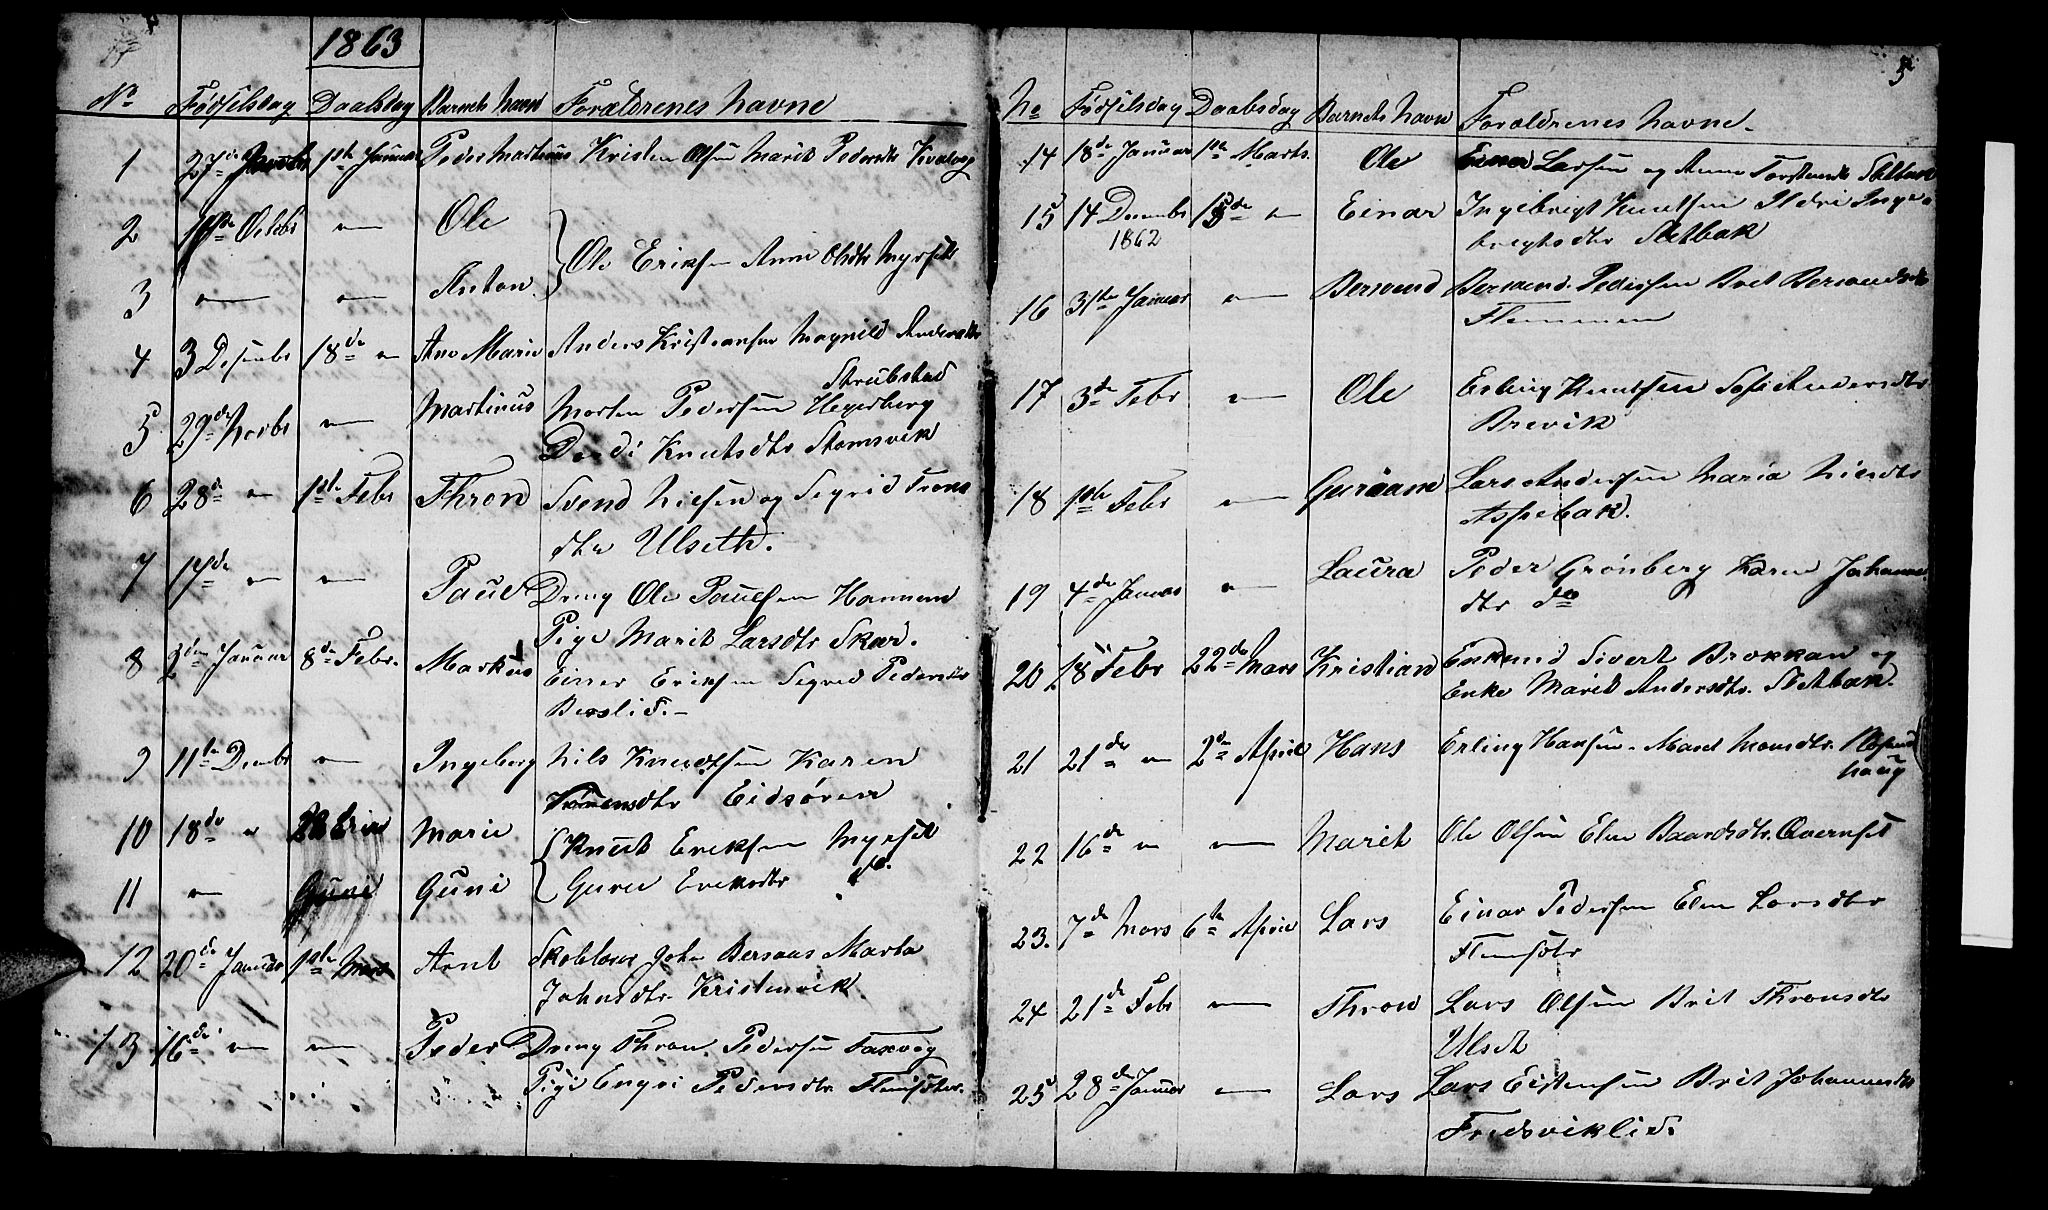 1863
No Fødselsdag Daabsdag Barnets Navn Forældrenes Navne
1 27de 1ste Januar Peder Martinus Kristen Olsen Marit Pedersdtr
2 Octobr — Ole
Ole Eriksen Anne Olsdtr Myrset
3 — — Anton
4 3 Desembr 18de — Ane Marie Anders Kristiansen Magnild Andersdtr
Strubstad
5 29de Novbr — Martinus Morten Pedersen Heyerberg
Dordi Knutsdtr Stomsvik
6 28de — 1ste Febr Thron Svend Nilsen og Sigrid Trons
dtr Ulseth.
7 17de — — Paul Dreng Ole Paulsen Hammem
Pige Marit Larsdtr Skar.
8 2den Januar 8de Febr. Markus
Einer Eriksen Sigrid Pedersdtr
Berslid. —
9 11te Decmbr — Ingeberg Nils Knudtsen Karen
Eidsøren
10 18de — Marie Knut Eriksen Myrset
11 — Guni Guni Guru Eriksdtr do.
12 20de Januar 1ste Mars Arnt Skolelærer John Bersaas Marta
Johnsdtr Kristenvik.
13 16de — — Peder Dreng Thron Pedersen Taxvog
Pige Engri Pedersdtr Flemsæter.
5
No Fødselsdag Daabsdag Barnets Navn Forældrenes Navne.
14 18de Januar 1ste Marts. Ole Einer Larsen og Anne Torstensdtr Sletbak
15 14 Decembr 15de — Einar Ingebrigt Knutsen Ildri Inge
1862 brigtsdtr Sletbak
16 31te Januar — Bersvend Bersvend Pedersen Brit Bersvendsdtr
Flemmen
17 3de Febr — Ole Erling Knutsen Sofi Andersdtr
Brevik
18 1ste Febr — Lars Andersen Maria Nilsdtr
Aspebak.
19 4de Januar — Laura Peder Grønberg Karen Johannes
dtr do
20 18 Febr 22de Mars Kristian Enkmd Sivert Brokkan og
Enke Marit Andersdtr. Sletbak.
21 21de — 2de April Hans Erling Hansen. Maret Monsdtr.
haug
22 16de — — Marit Ole Olsen Elen Baardsdtr. Qvernset
23. 7de Mars 6te April Lars Einar Pedersen Elen Larsdtr
Flemsætr
24 21de Febr — Thron Lars Olsen Brit Thronsdtr
Ulset
25 28de Januar — Lars Lars Eistensen Brit Johannesdtr
Fredsviklid.